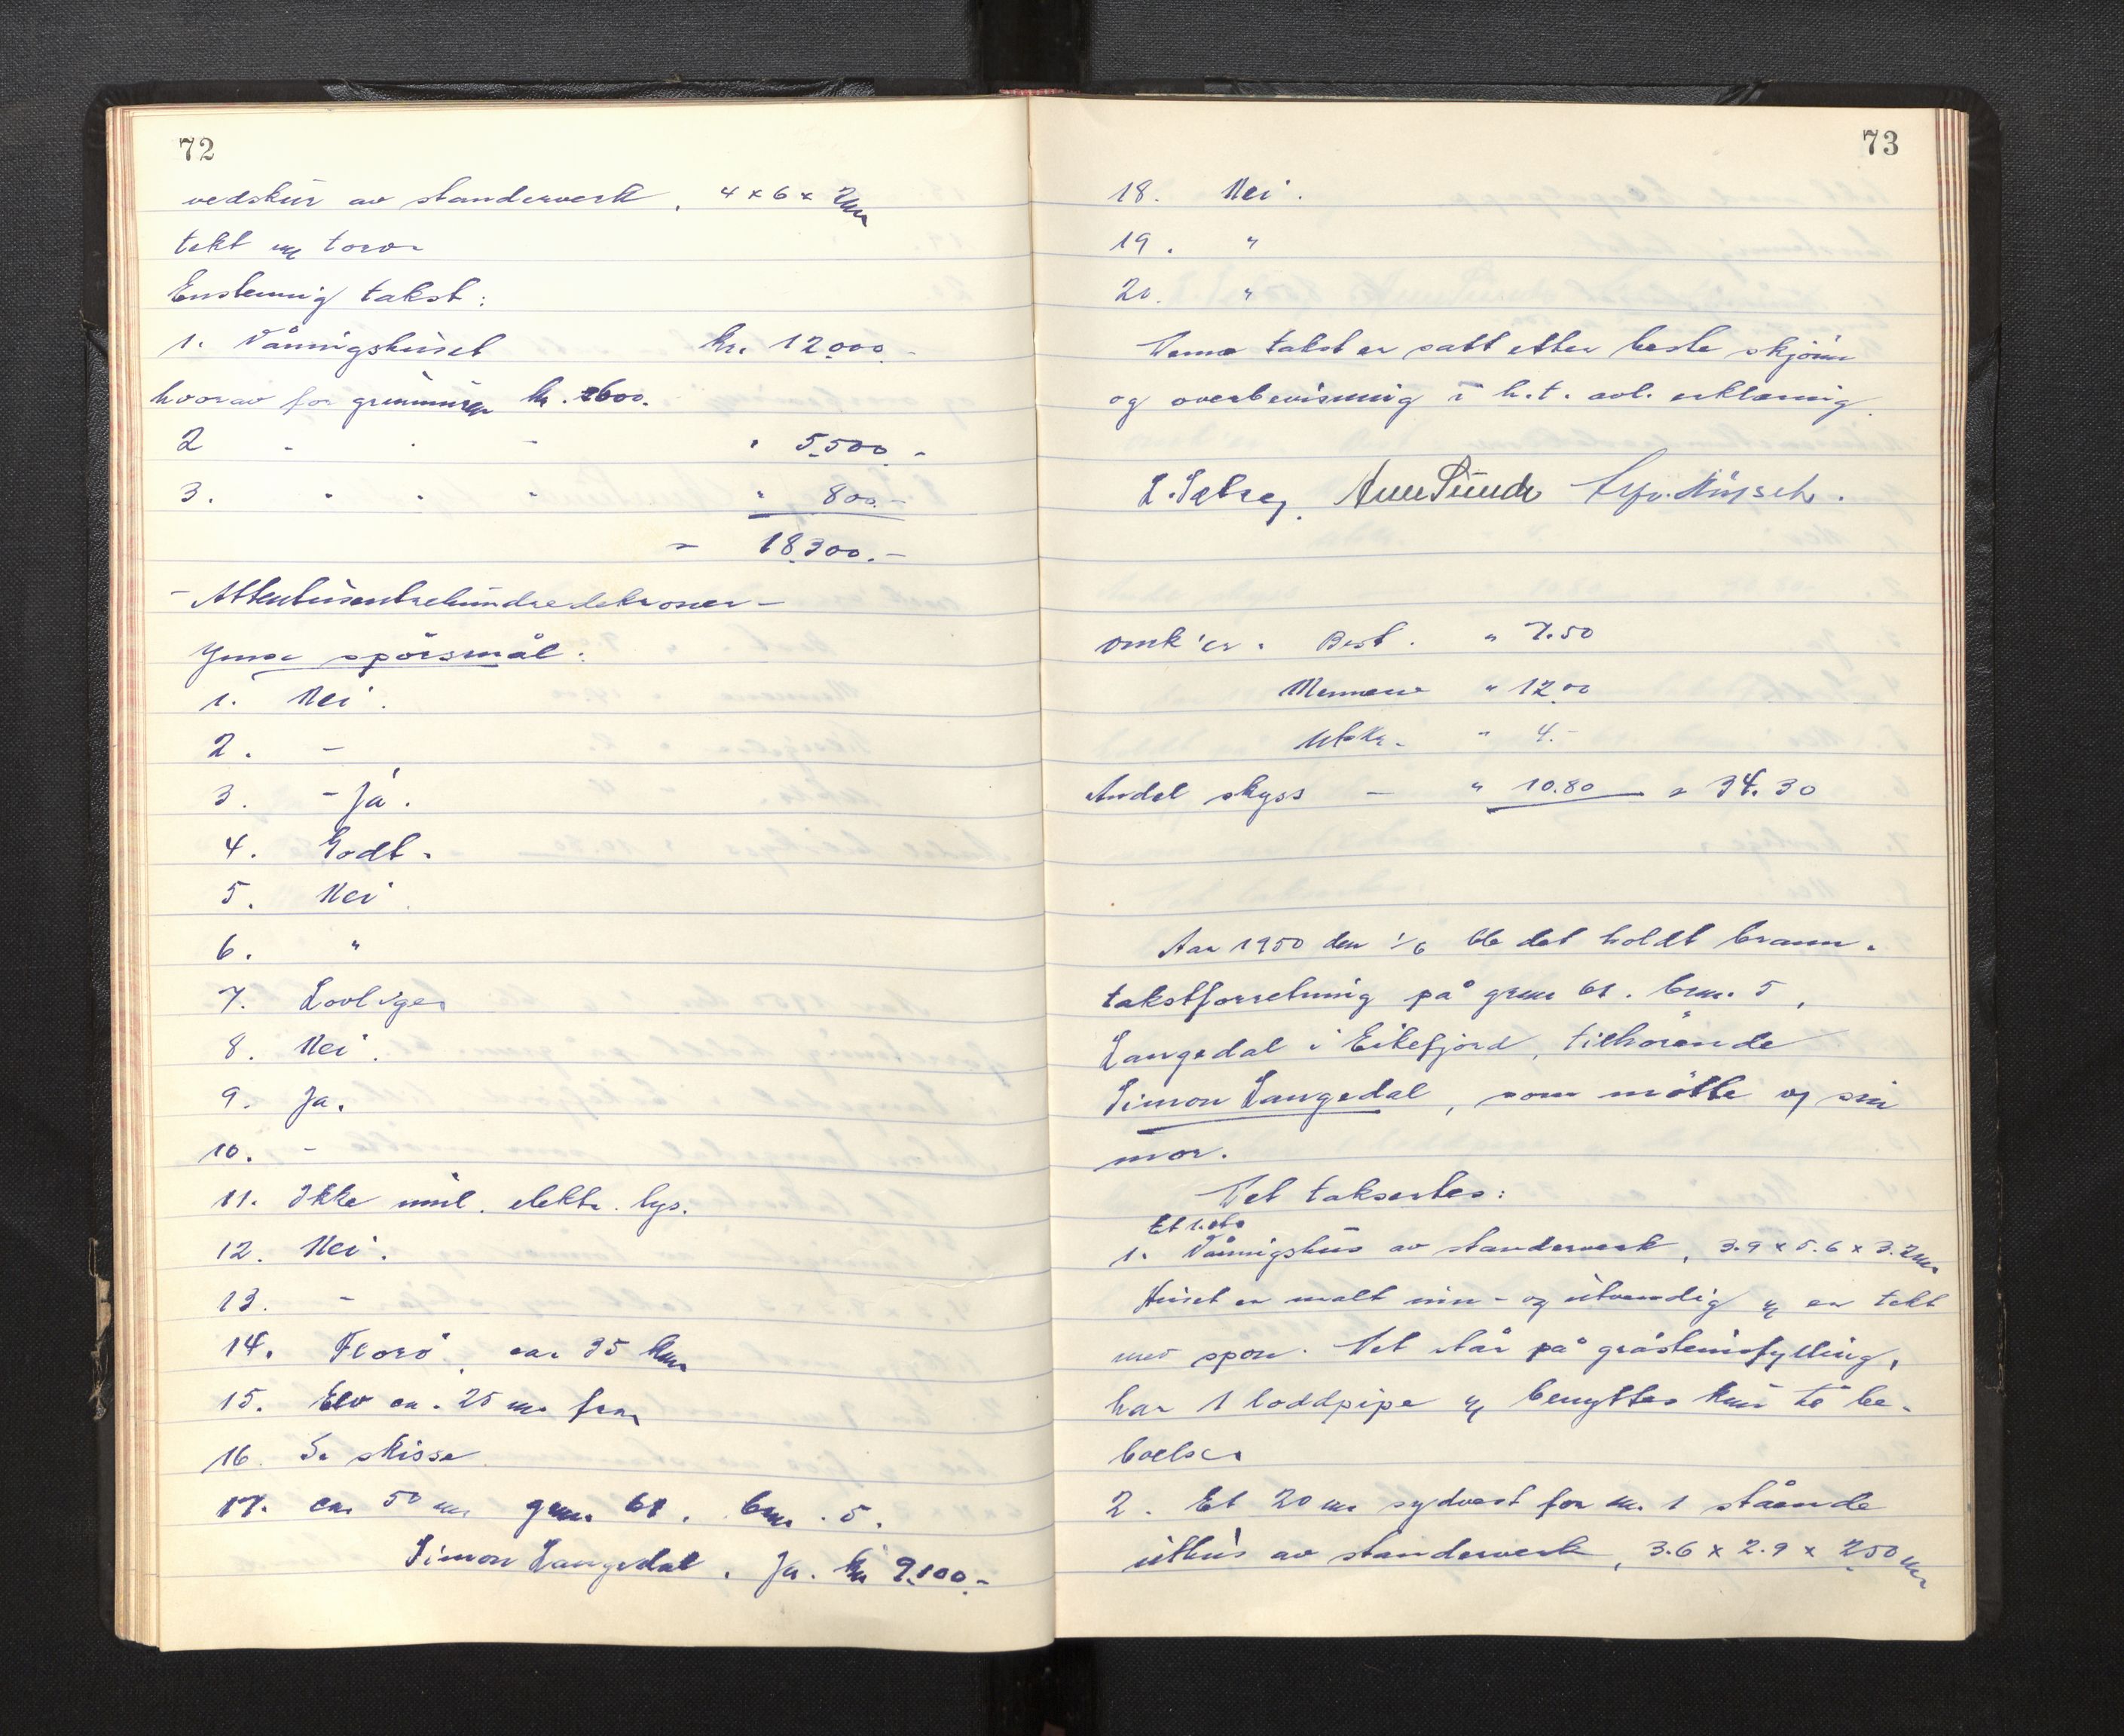 72
vedskur av standerverk, 4 x 6 x 2 m
tekt m torv
Enstemmig takst:
1. Våningshuset kr. 12.000.-
hvorav for grunnmuren kr. 600.
2 - - - " 5.500.-
3. " " " " 800.-
= 18.300.-
- Attentusentrehundredekroner -
Jmse spörsmål:
1. Nei.
2. -
3. - Ja.
4. Godt.
5. Nei.
6. "
7. Lovliges
8. Nei.
9. Ja.
10. -
11. Ikke innl. elektr. lys.
12. Nei.
13. -
14. Florö, ca. 35 km
15. Elv ca. 25 m fra
16. Se skisse.
17. ca. 50 m gnr. 61, bnr. 5.
Simon Langedal. Ja. kr 9.100.-
73
18. Nei.
19. "
20. "
Denne takst er satt etter beste skjönn
og overbevisning i h.t. avl. erklæring.
Sunde
Omk'er. Best. " 7.50
Mennene " 12.00
Utskr. " 4.-
Andel skyss - " 10.80 = 34.30
Aar 1950 den 1/6 ble det holdt brann-
takstforretning på gnr 61. bnr. 5,
Langedal i Eikefjord, tilhörende
Simon Langedal, som mötte og sin
mor.
Det takseртes:
Et 1. etg
1. Våningshus av standerverk, 3.9 x 5.6 x 3.2 m
Huset er malt inn- og utvendig og er tekt
med spon. Det står på gråsteinsfylling,
har 1 loddpipe og benyttes kun til be-
boelse.
2. Et 20 m sydvest for nr. 1 stående
uthus av standerverk, 3.6 x 2.9 x 2.50 m